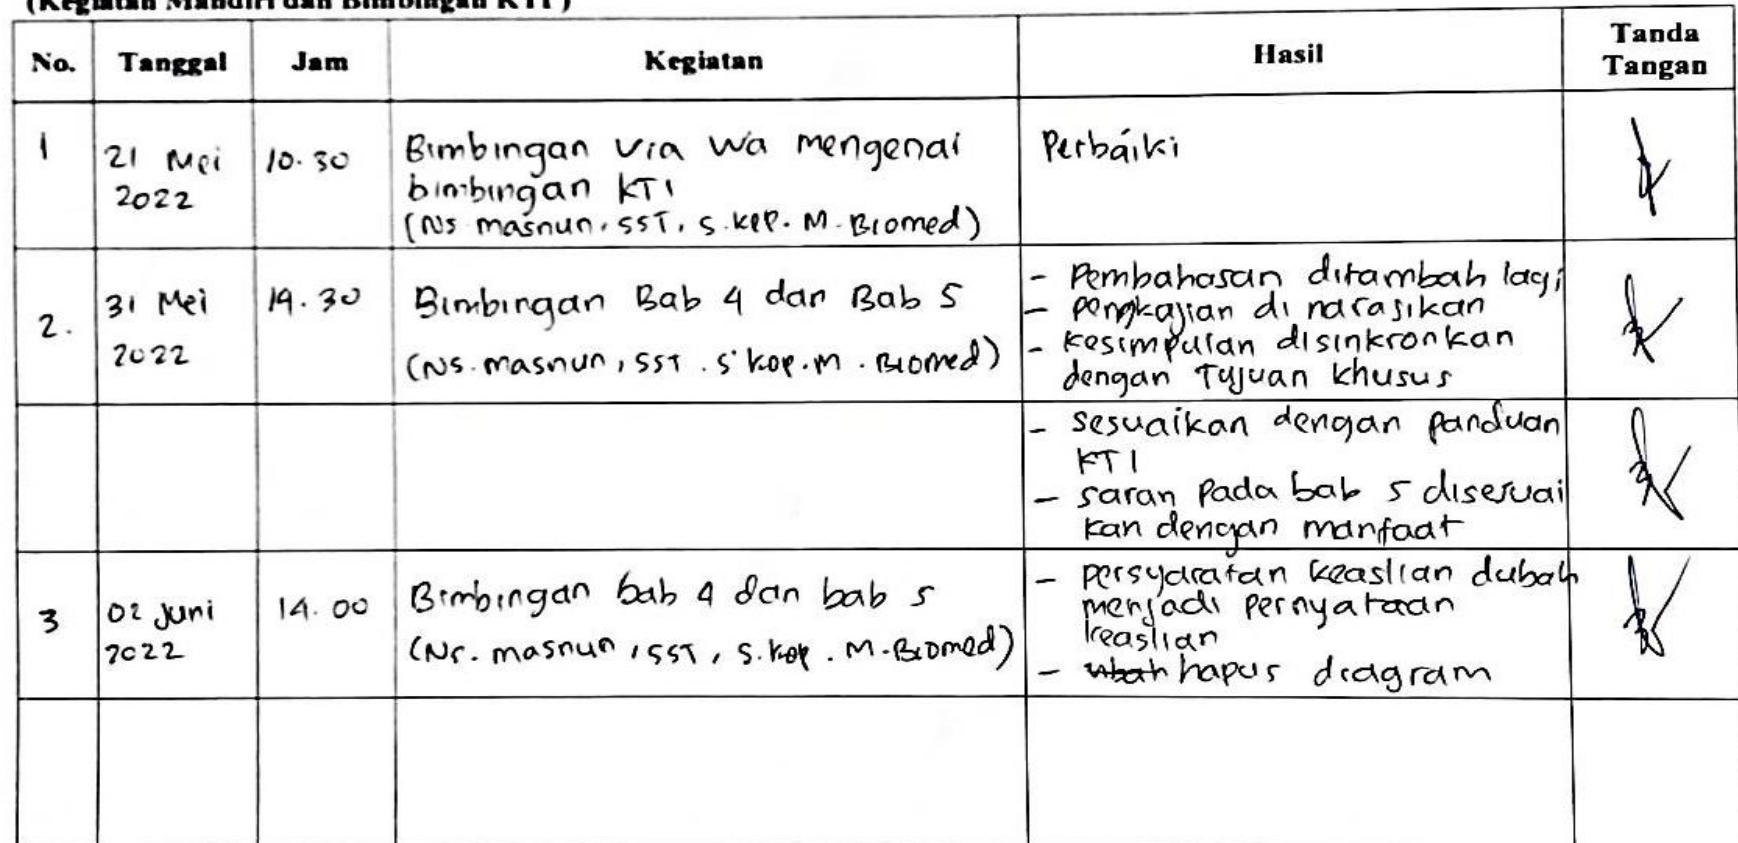 (Kegiatan Mandiri dan Bimbingan KTI )
No. Tanggal Jam Kegiatan Hasil Tanda Tangan
1 21 Mei 2022 10.30 Bimbingan via wa mengenai Perbaiki
bimbingan KTI
(Ns masnun, SST, S.kep. M. Biomed)
2. 31 Mei 2022 14.30 Bimbingan Bab 4 dan Bab 5
(Ns. masnun, SST. S.kep. M. Biomed)
- Pembahasan ditambah lagi
- pengkajian di narasikan
- kesimpulan disinkronkan
dengan Tujuan khusus
- sesuaikan dengan panduan
KTI
- saran pada bab 5 disesuai
kan dengan manfaat
3 02 Juni 2022 14.00 Bimbingan bab 4 dan bab 5
(Ns. masnun, SST, S.kep. M.Biomed)
- persyaratan keaslian dubah
menjadi pernyataan
keaslian
- ubah hapus diagram